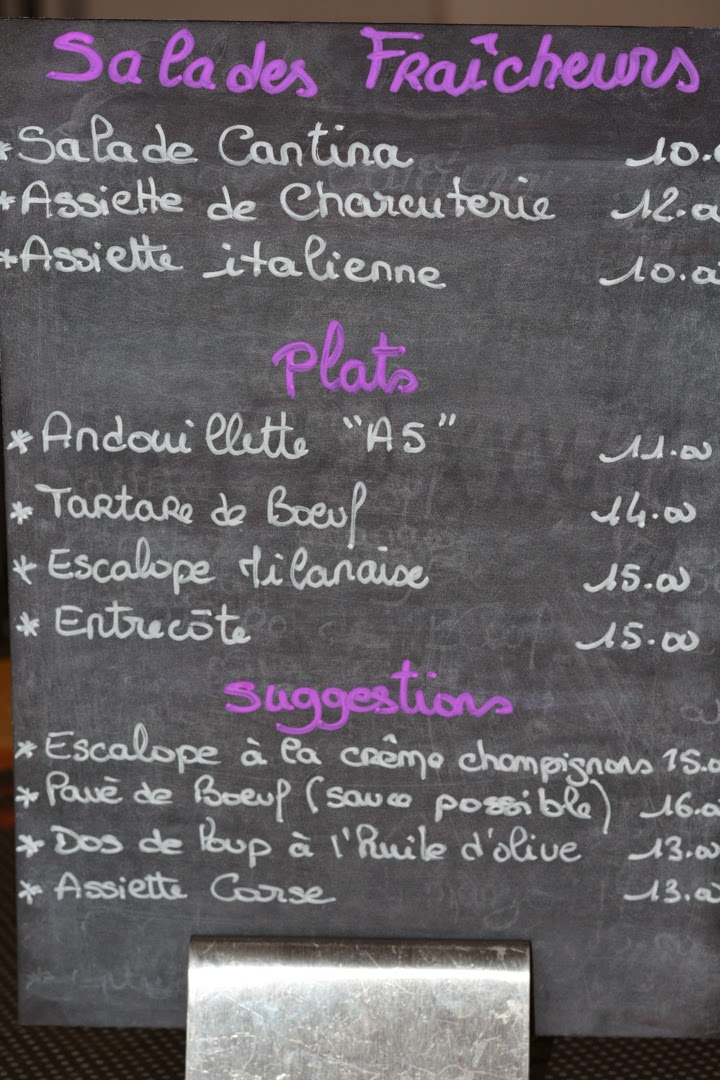 Salades Fraîcheurs
*Salade Cantina 10.0
*Assiette de Charcuterie 12.00
*Assiette italienne 10.00
Plats
* Andouillette "A5" 11.00
* Tartare de Boeuf 14.00
* Escalope Milanaise 15.00
* Entrecôte 15.00
Suggestions
* Escalope à la crême champignons 15.0
* Pavè de Boeuf (sauce possible) 16.00
* Dos de loup à l'huile d'olive 13.00
* Assiette Corse 13.00